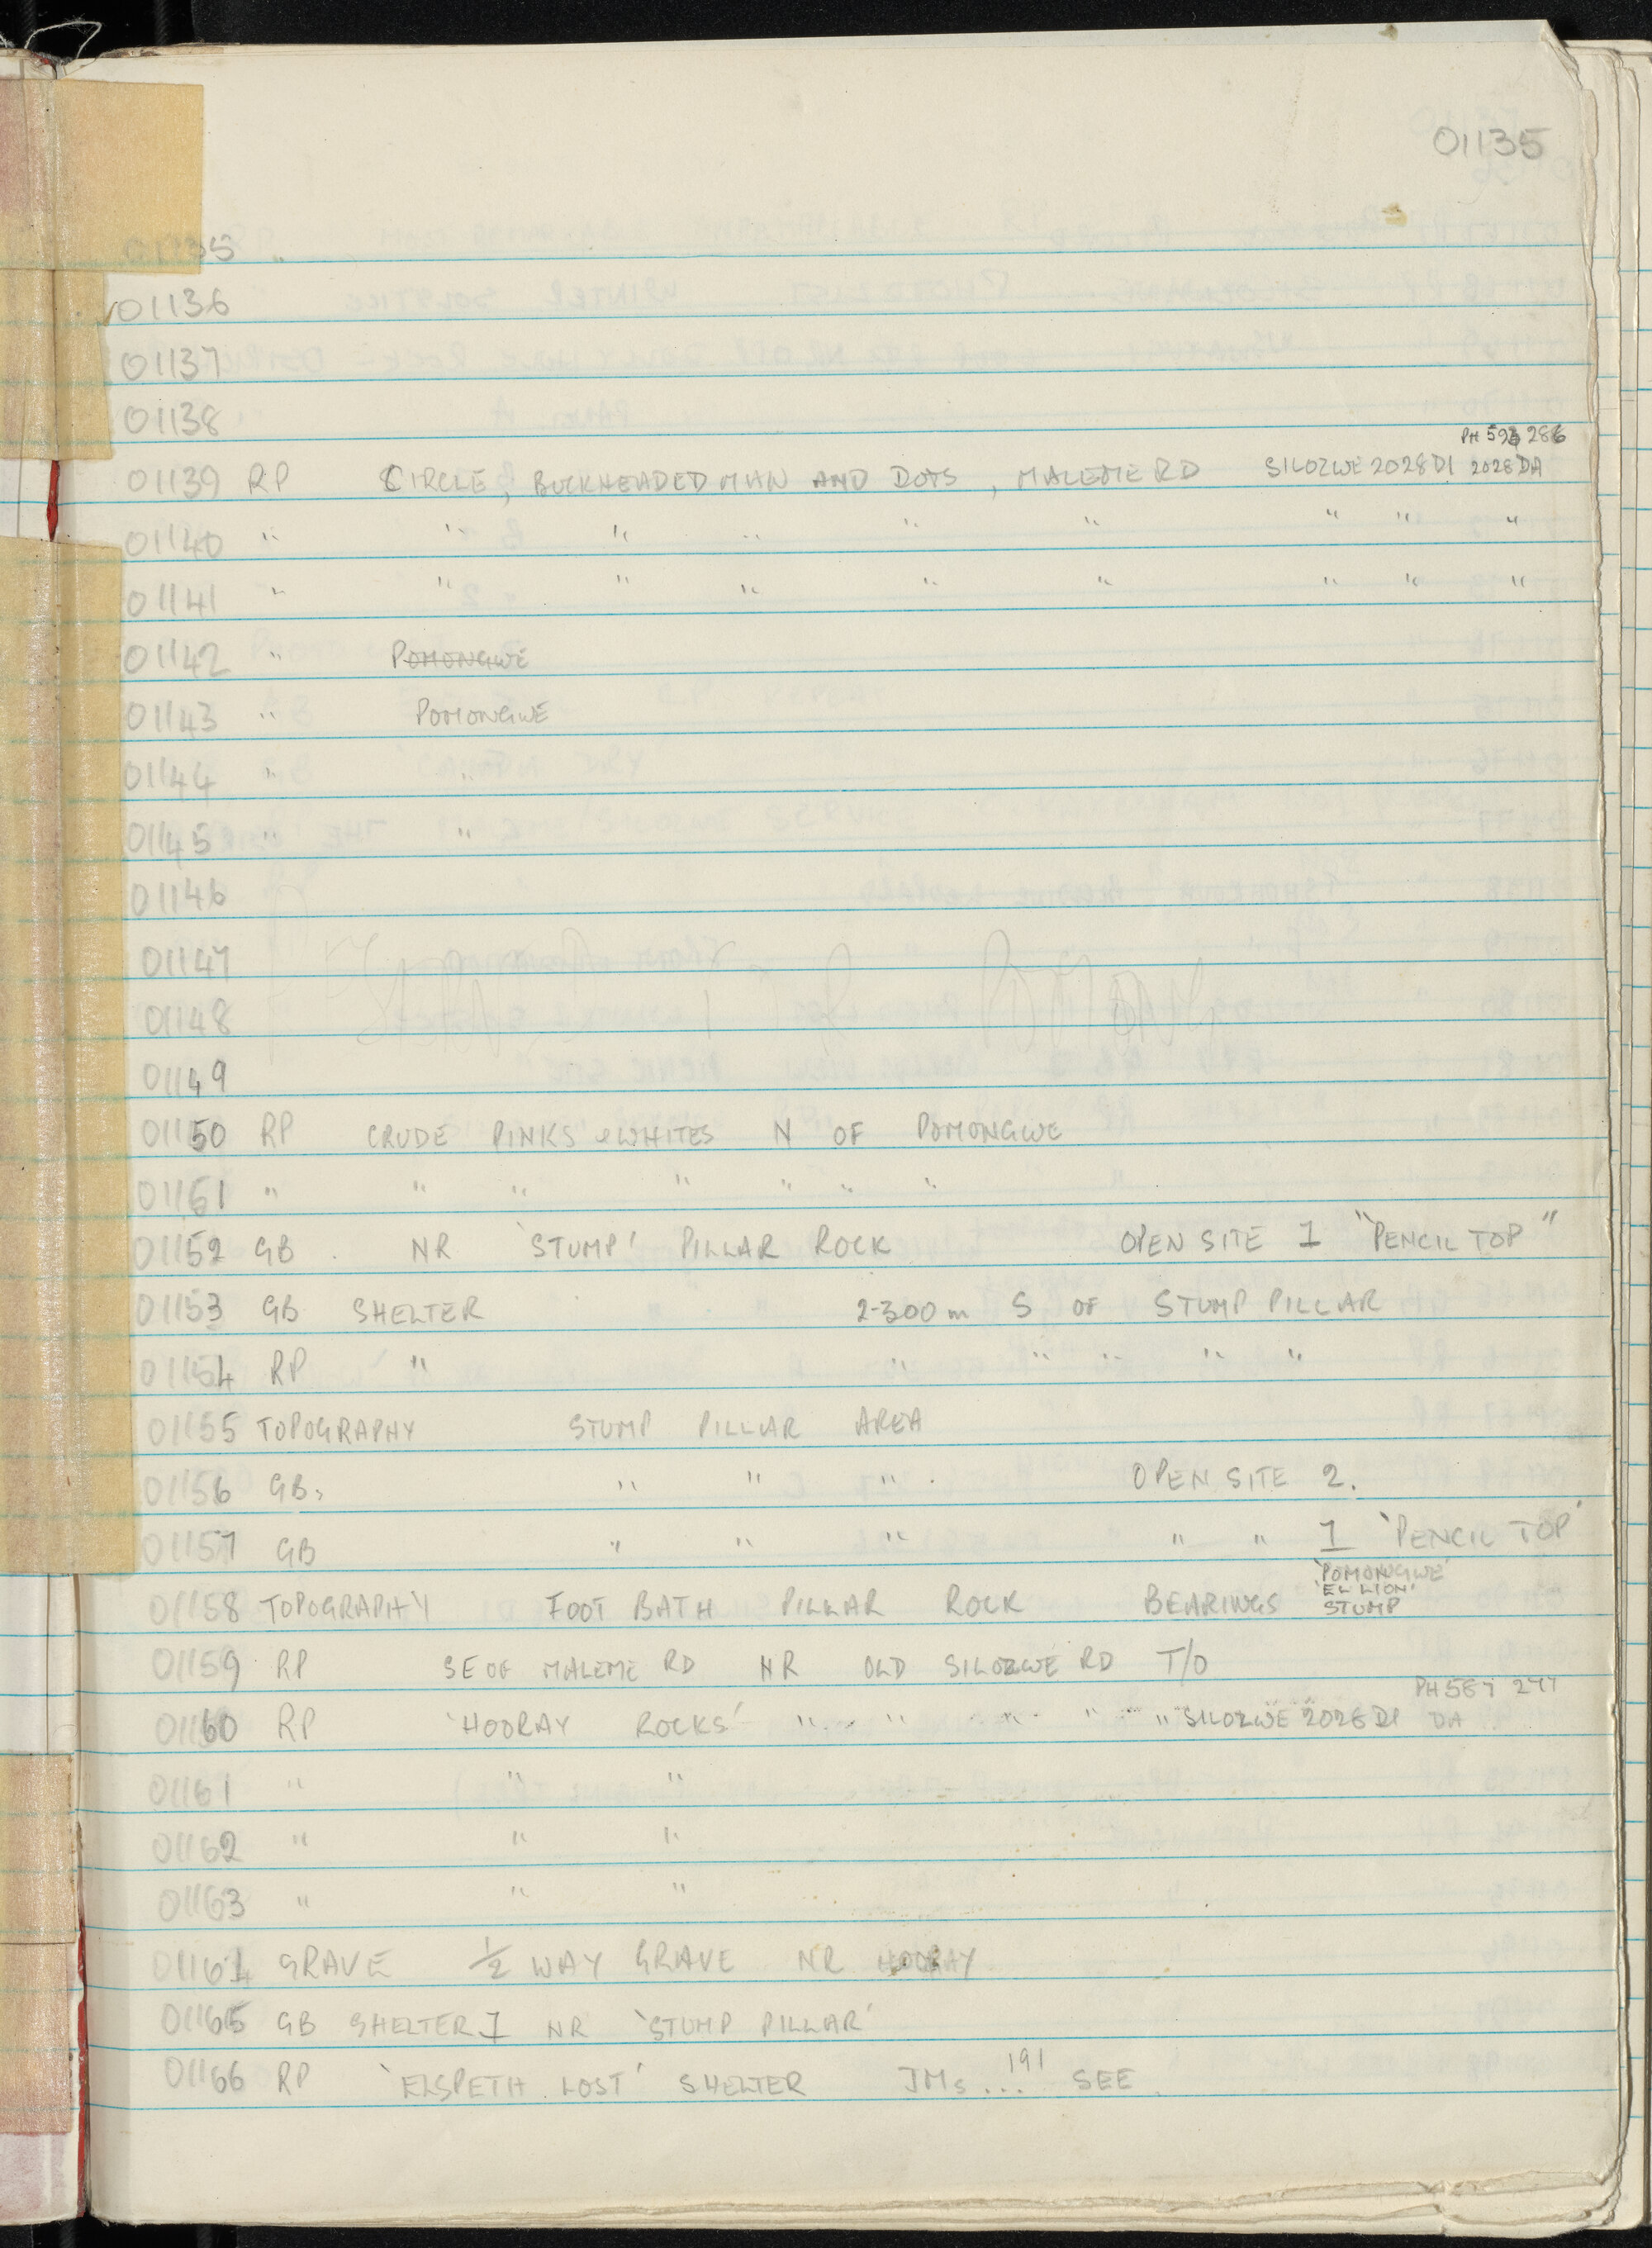 01135
01135 "
01136
01137
01138
PH 593 286
01139 RP CIRCLE, BUCKHEADED MAN AND DOTS, MALEME RD SILOZWE 2028D1 2028DA
01140 " " " " " " " " "
01141 " " " " " " " " "
01142 " POMONGWE
01143 " POMONGWE
01144 " "
01145 " "
01146
01147
01148
01149
01150 RP CRUDE PINKS & WHITES N OF POMONGWE
01151 " " " " " " "
01152 GB. NR 'STUMP' PILLAR ROCK OPEN SITE 1 "PENCIL TOP"
01153 GB SHELTER 2-300m S OF STUMP PILLAR
01154 RP " " " " " "
01155 TOPOGRAPHY STUMP PILLAR AREA
01156 GB. " " " . OPEN SITE 2.
01157 GB " " " " " 1 'PENCIL TOP'
'POMONGWE'
'EL LION'
01158 TOPOGRAPHY FOOT BATH PILLAR ROCK BEARINGS STUMP
01159 RP SE OF MALEME RD NR OLD SILOZWE RD T/O
PH 567 277
01160 RP 'HOORAY ROCKS' " " " " " SILOZWE 2028D1 DA
01161 " " "
01162 " " "
01163 " " "
01164 GRAVE 1/2 WAY GRAVE NR HOORAY
01165 GB SHELTER 1 NR 'STUMP PILLAR'
01166 RP 'ELSPETH LOST' SHELTER JMs...191 SEE